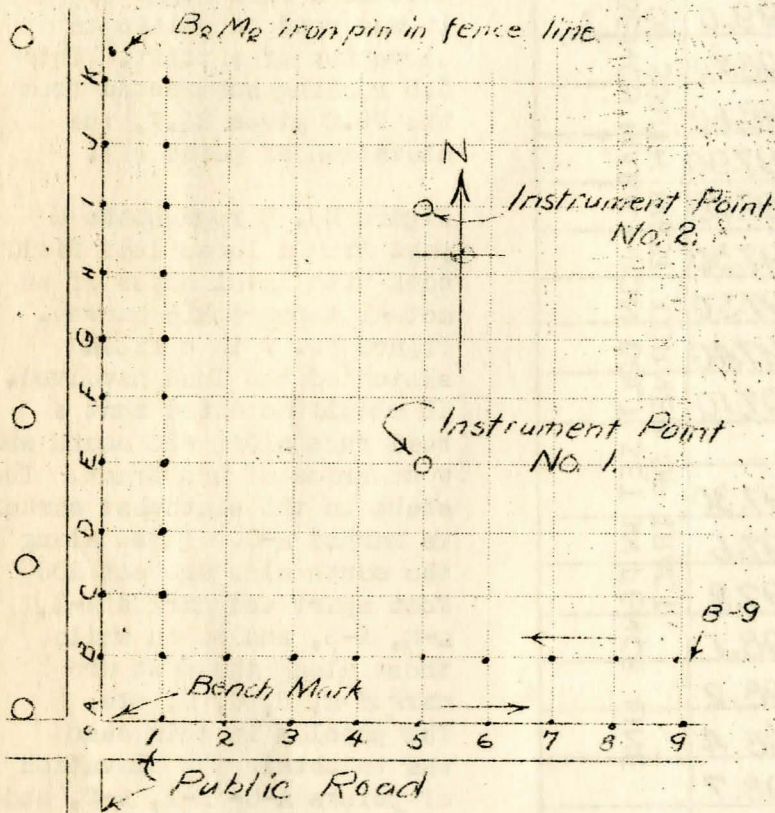 B2M2 iron pin in fence line
K
J
N
I
Instrument Point
No. 2.
H
G
F
Instrument Point
E
No. 1.
D
C
B-9
B
Bench Mark
A
1 2 3 4 5 6 7 8 9
Public Road